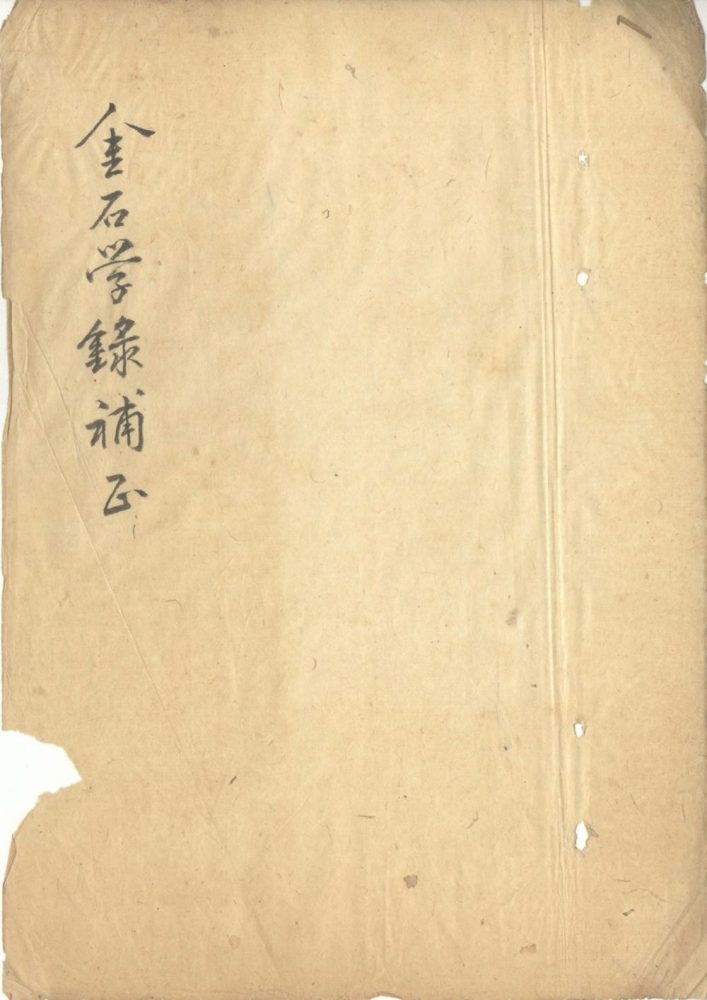 金石学録補正